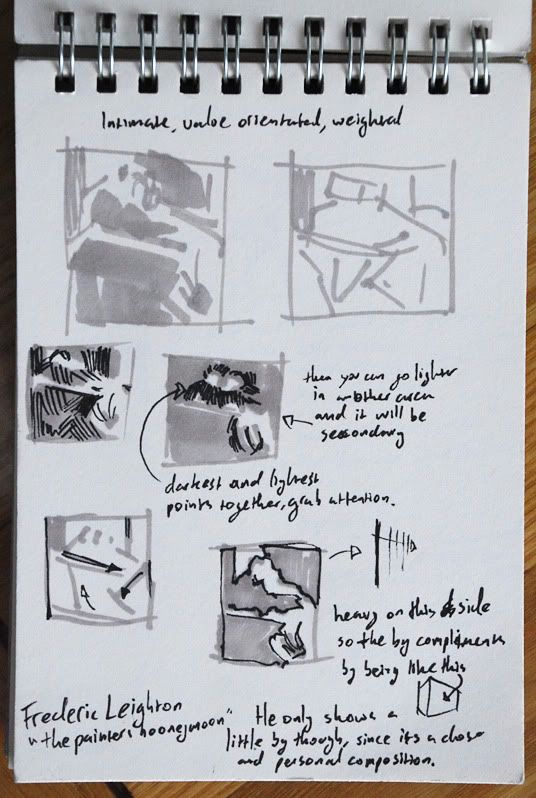 Intimate, value orientated, weighted
then you can go lighter
in another area
and it will be
secondary
darkest and lightest
points together, grab attention.
heavy on this side
so the bg compliments
by being like this
Frederic Leighton
"the painters hooneymoon"
He only shows a
little bg though, since its a close
and personal composition.